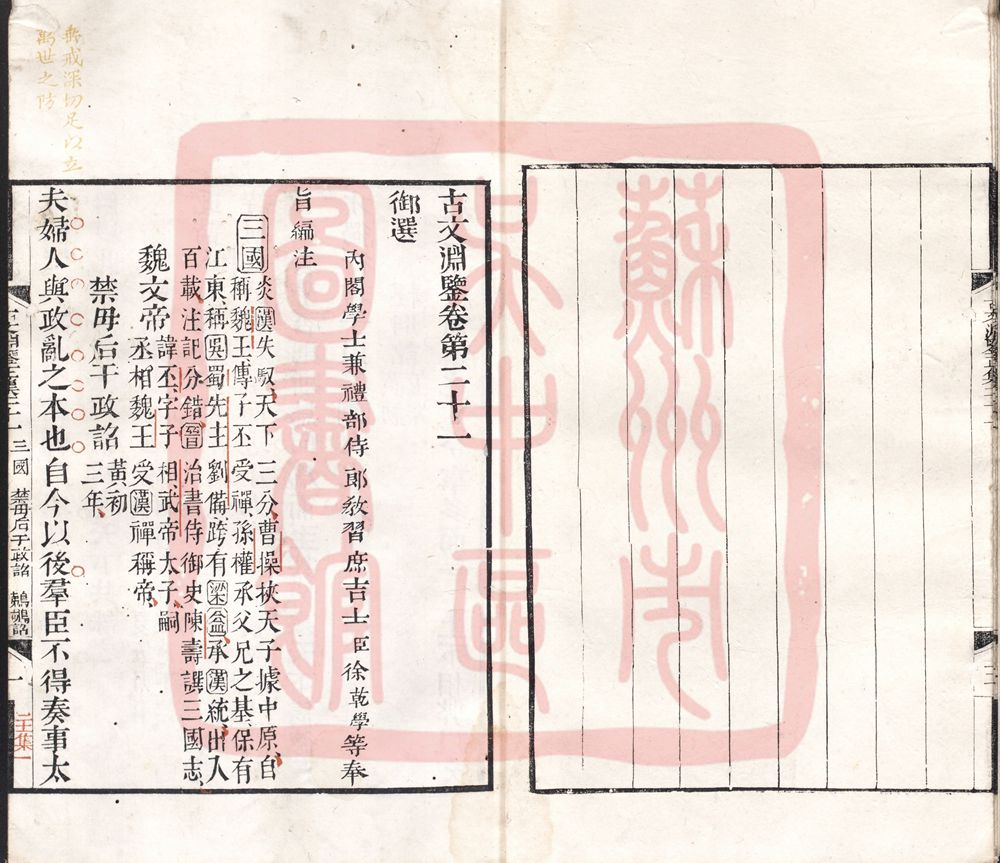 古文淵鑒卷第二十一
御選
內閣學士兼禮部侍郎敎習庶吉士臣徐乾學等奉
旨編注
三國
炎漢失馭天下三分曹操挾天子據中原自
稱魏王傳子丕受禪孫權承父兄之基保有
江東稱吳蜀先主劉備跨有梁益承漢統出入
百載注記分錯晉治書侍御史陳壽譔三國志
魏文帝
諱丕字子桓武帝太子嗣
丞相魏王受漢禪稱帝
禁母后干政詔
黃初
三年
夫婦人與政亂之本也自今以後羣臣不得奏事太
垂戒深切足以立
萬世之防
三國 禁母后干政詔 鵜鶘詔
一
壬集一
蘇州市
吳中區
圖書館